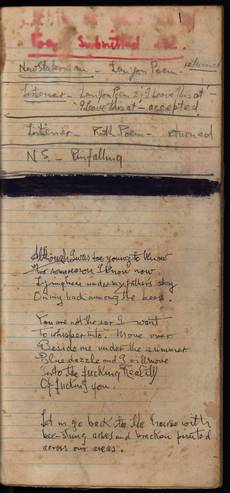 Poems Submitted
Newstatesman - Lanyon Poem - returned
Listener - Lanyon Poem 2; I Leave this at -
I Leave this at - accepted
Listener - Ruth Poem - returned
N.S. - Pinfalling
Although I was too young to know
I know now
Lying here under my fathers sky
On my back among the
You are not the ear I want
To whisper into. Move over
Beside me under the summer
Blue dazzle and I will move
Into the fucking Reality
Of fucking you.
Let me go back to the house with
bee-stung arses and bracken printed
across our